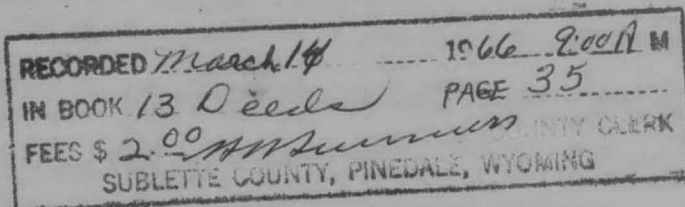 RECORDED March 14 1966 9:00 A M
IN BOOK 13 Deeds PAGE 35
FEES $ 2.00 COUNTY CLERK
SUBLETTE COUNTY, PINEDALE, WYOMING